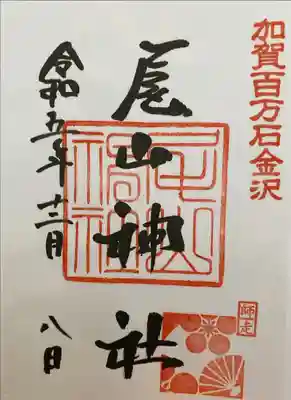 加賀百万石金沢
尾山神社
令和五年十二月八日
尾山神社
師走